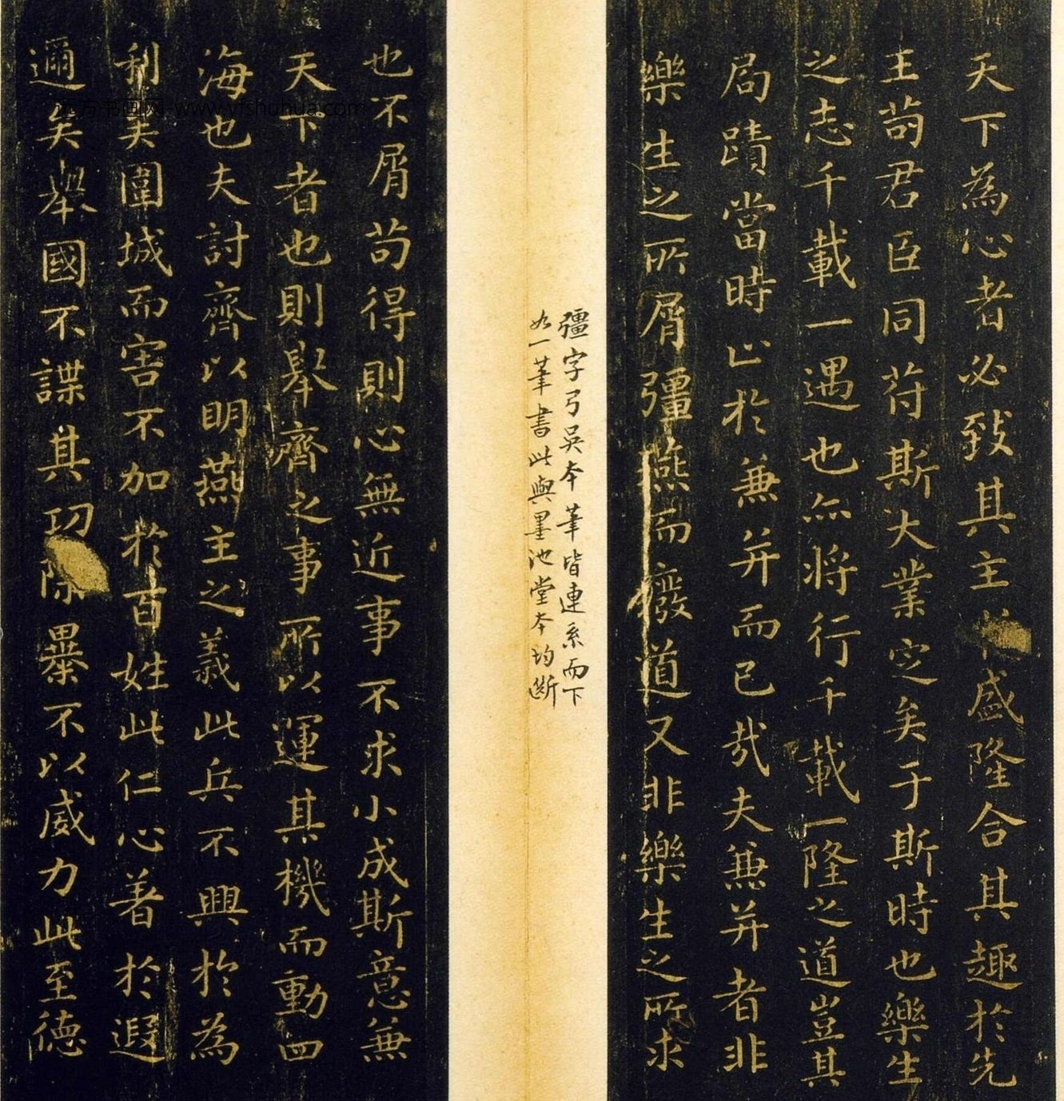 天下為心者必致其主於盛隆合其趣於先
王苟君臣同苻斯大業定矣于斯時也樂生
之志千載一遇也亦將行千載一隆之道豈其
局蹟當時止於兼并而已哉夫兼并者非
樂生之所屑彊燕而廢道又非樂生之所求
彊字弓吳本筆皆連系而下
如一筆書此與墨池堂本均斷
也不屑苟得則心無近事不求小成斯意無
天下者也則舉齊之事所以運其機而動四
海也夫討齊以明燕主之義此兵不興於為
利矣圍城而害不加於百姓此仁心著於遐
邇矣舉國不謀其功除暴不以威力此至德
书画网 www.yfshuhua.com